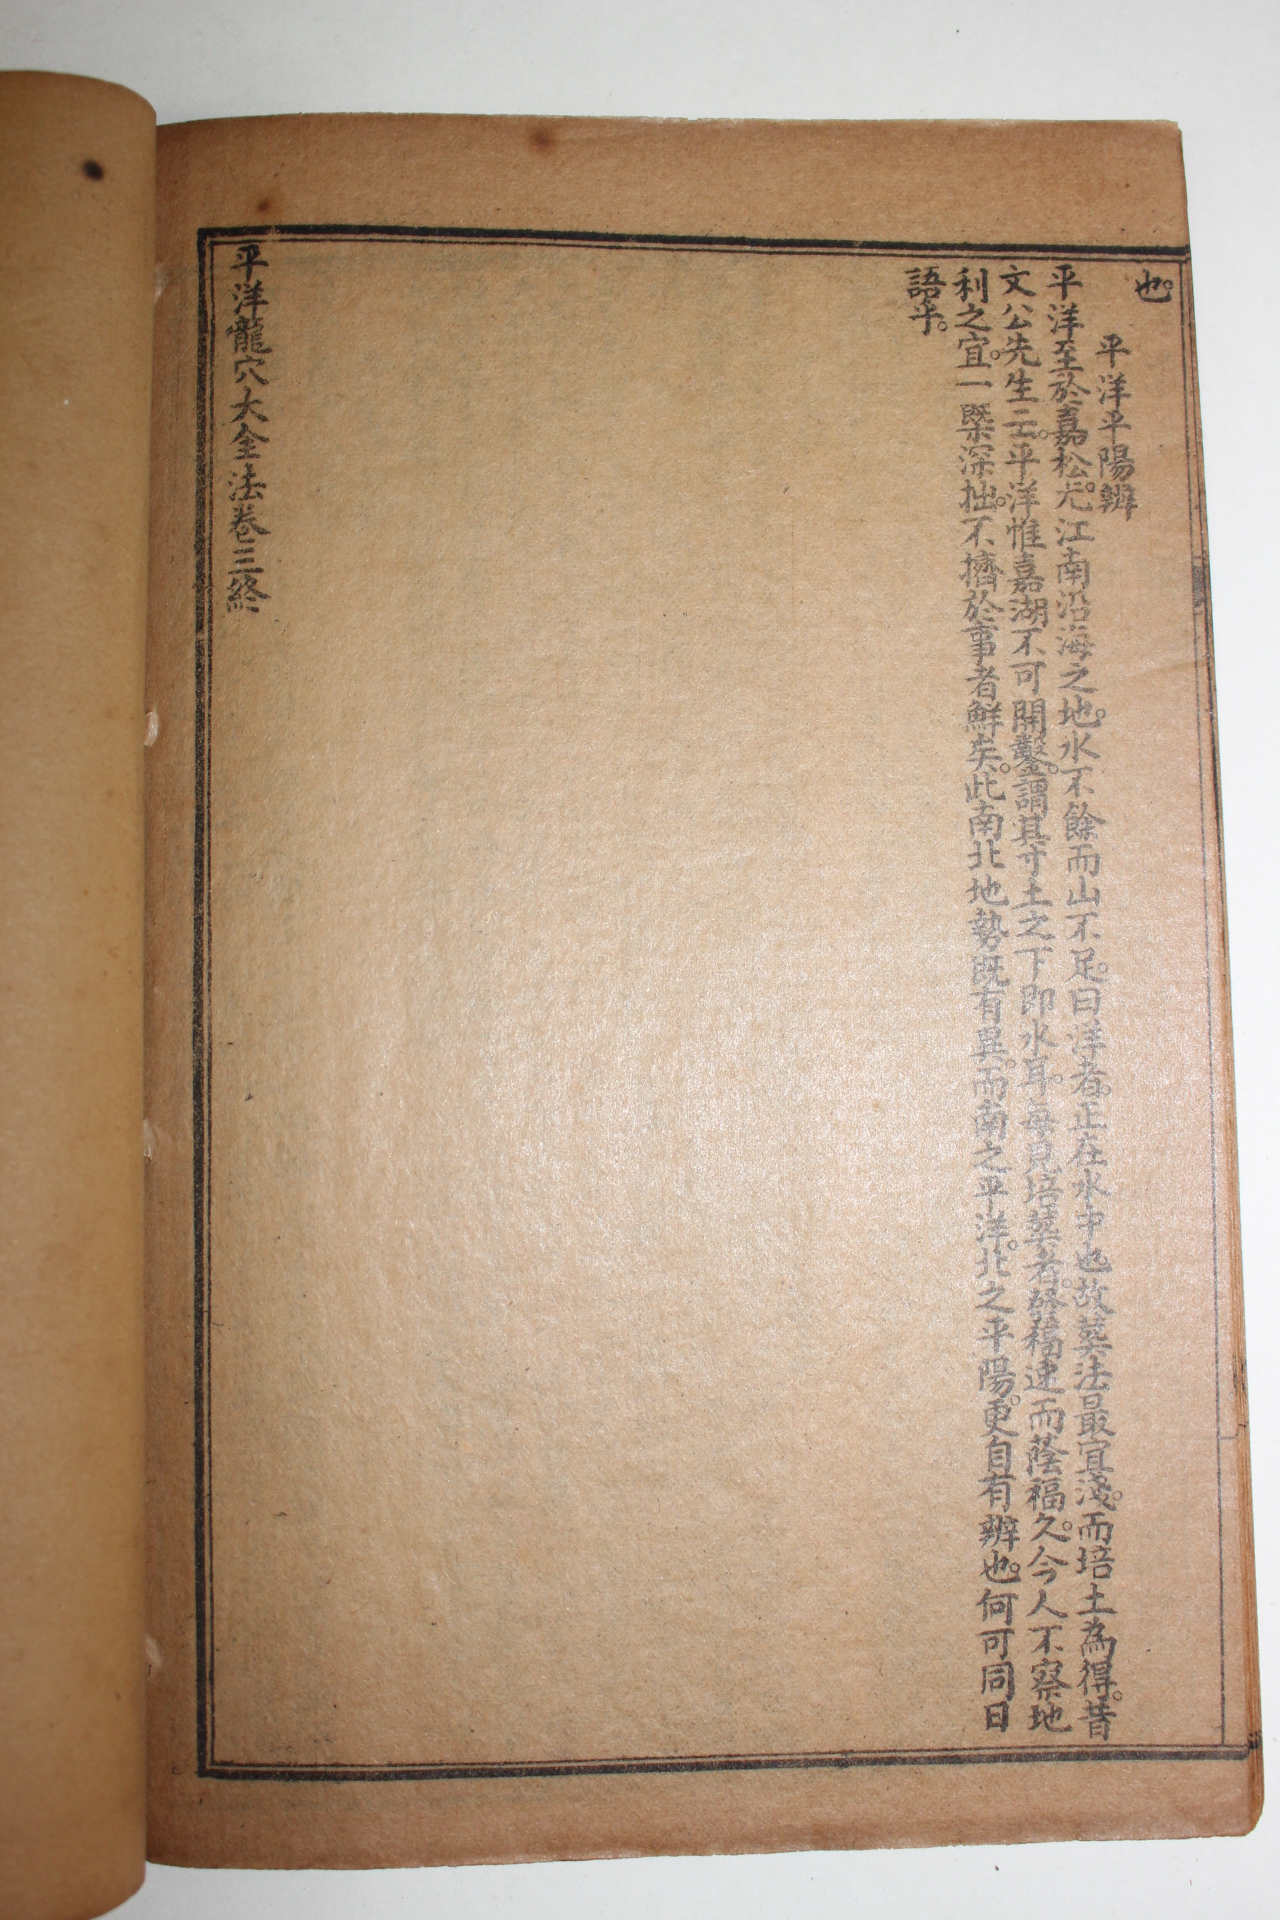 也。
平洋平陽辨
平洋至於嘉松。尤江南沿海之地。水不餘而山不足。曰洋者。正在水中也。故葬法最宜淺。而培土為得。昔
文公先生云。平洋惟嘉湖不可開鑿。謂其寸土之下即水耳。每見培葬者。發福速而蔭福久。今人不察地
利之宜。一槩深拙。不擠於事者鮮矣。此南北地勢既有異。而南之平洋。北之平陽。更自有辨也。何可同日
語乎。
平洋龍穴大全法卷三終